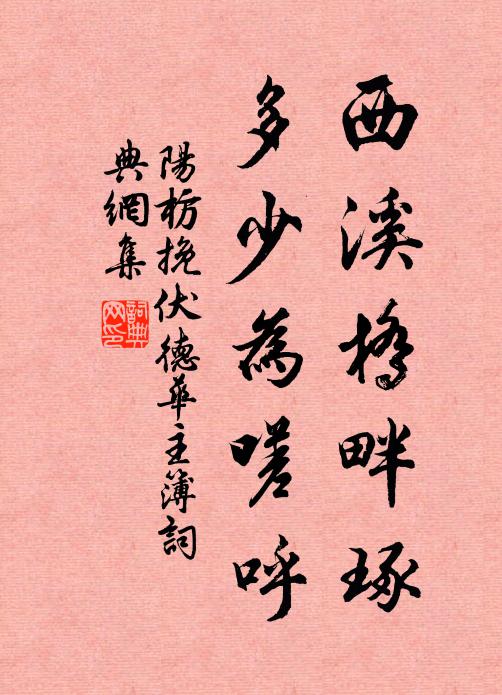 西溪橋畔琢
多少為嗟呼
陽枋挽伏德華主簿詞
典網集
詞典
网印